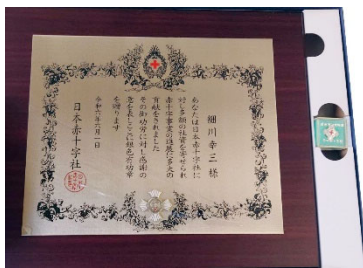 細川幸三 様
あなたは日本赤十字社に
対し多額の社資を寄せられ
赤十字事業の進展に多大の
貢献をされました
その御功労に対し感謝の
意を表しここに銀色有功章
を贈ります
令和六年二月一日
日本赤十字社